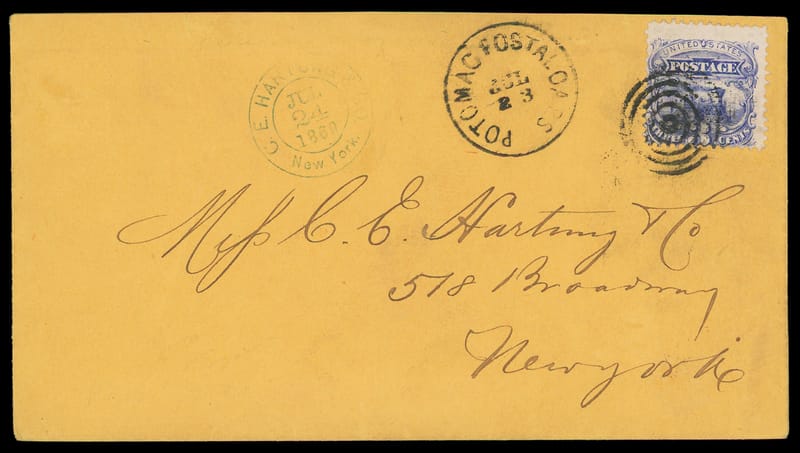 C.E. HARTUNG &
JUL
24
1869
New York.
POTOMAC POSTAL CARS
JUL
23
UNITED STATES
POSTAGE
THREE CENTS
Mess C. E. Hartung & Co
518 Broadway
New york